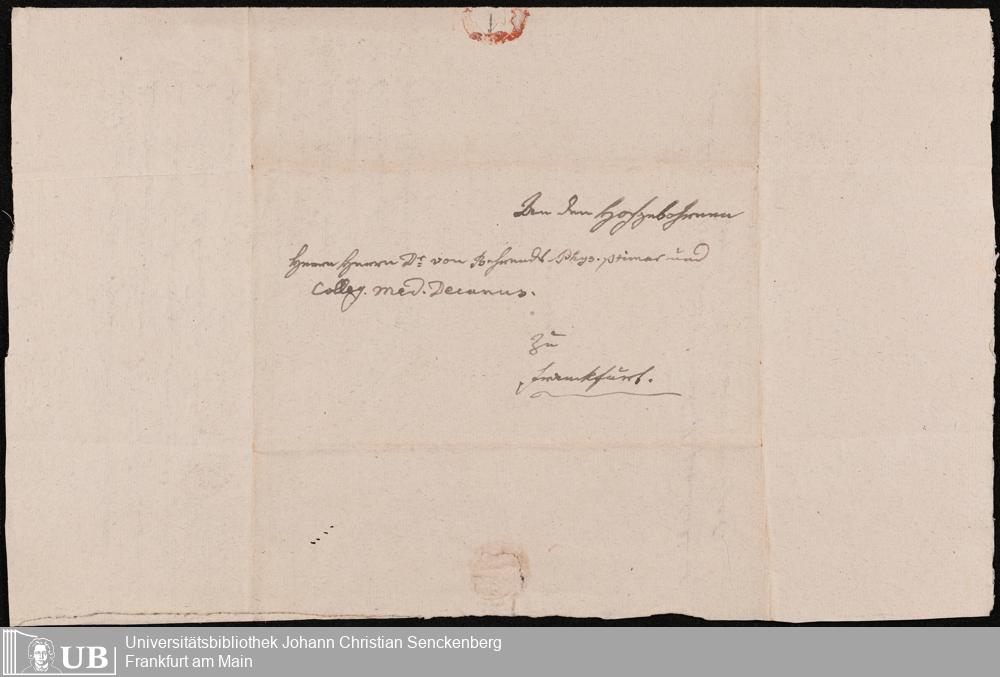 An den Hochgebohrnen
Herrn Herrn Dr. von Behrends Phys. primar und
Colleg. med. Decanus.
Zu
Franckfurt.
UB
Universitätsbibliothek Johann Christian Senckenberg
Frankfurt am Main